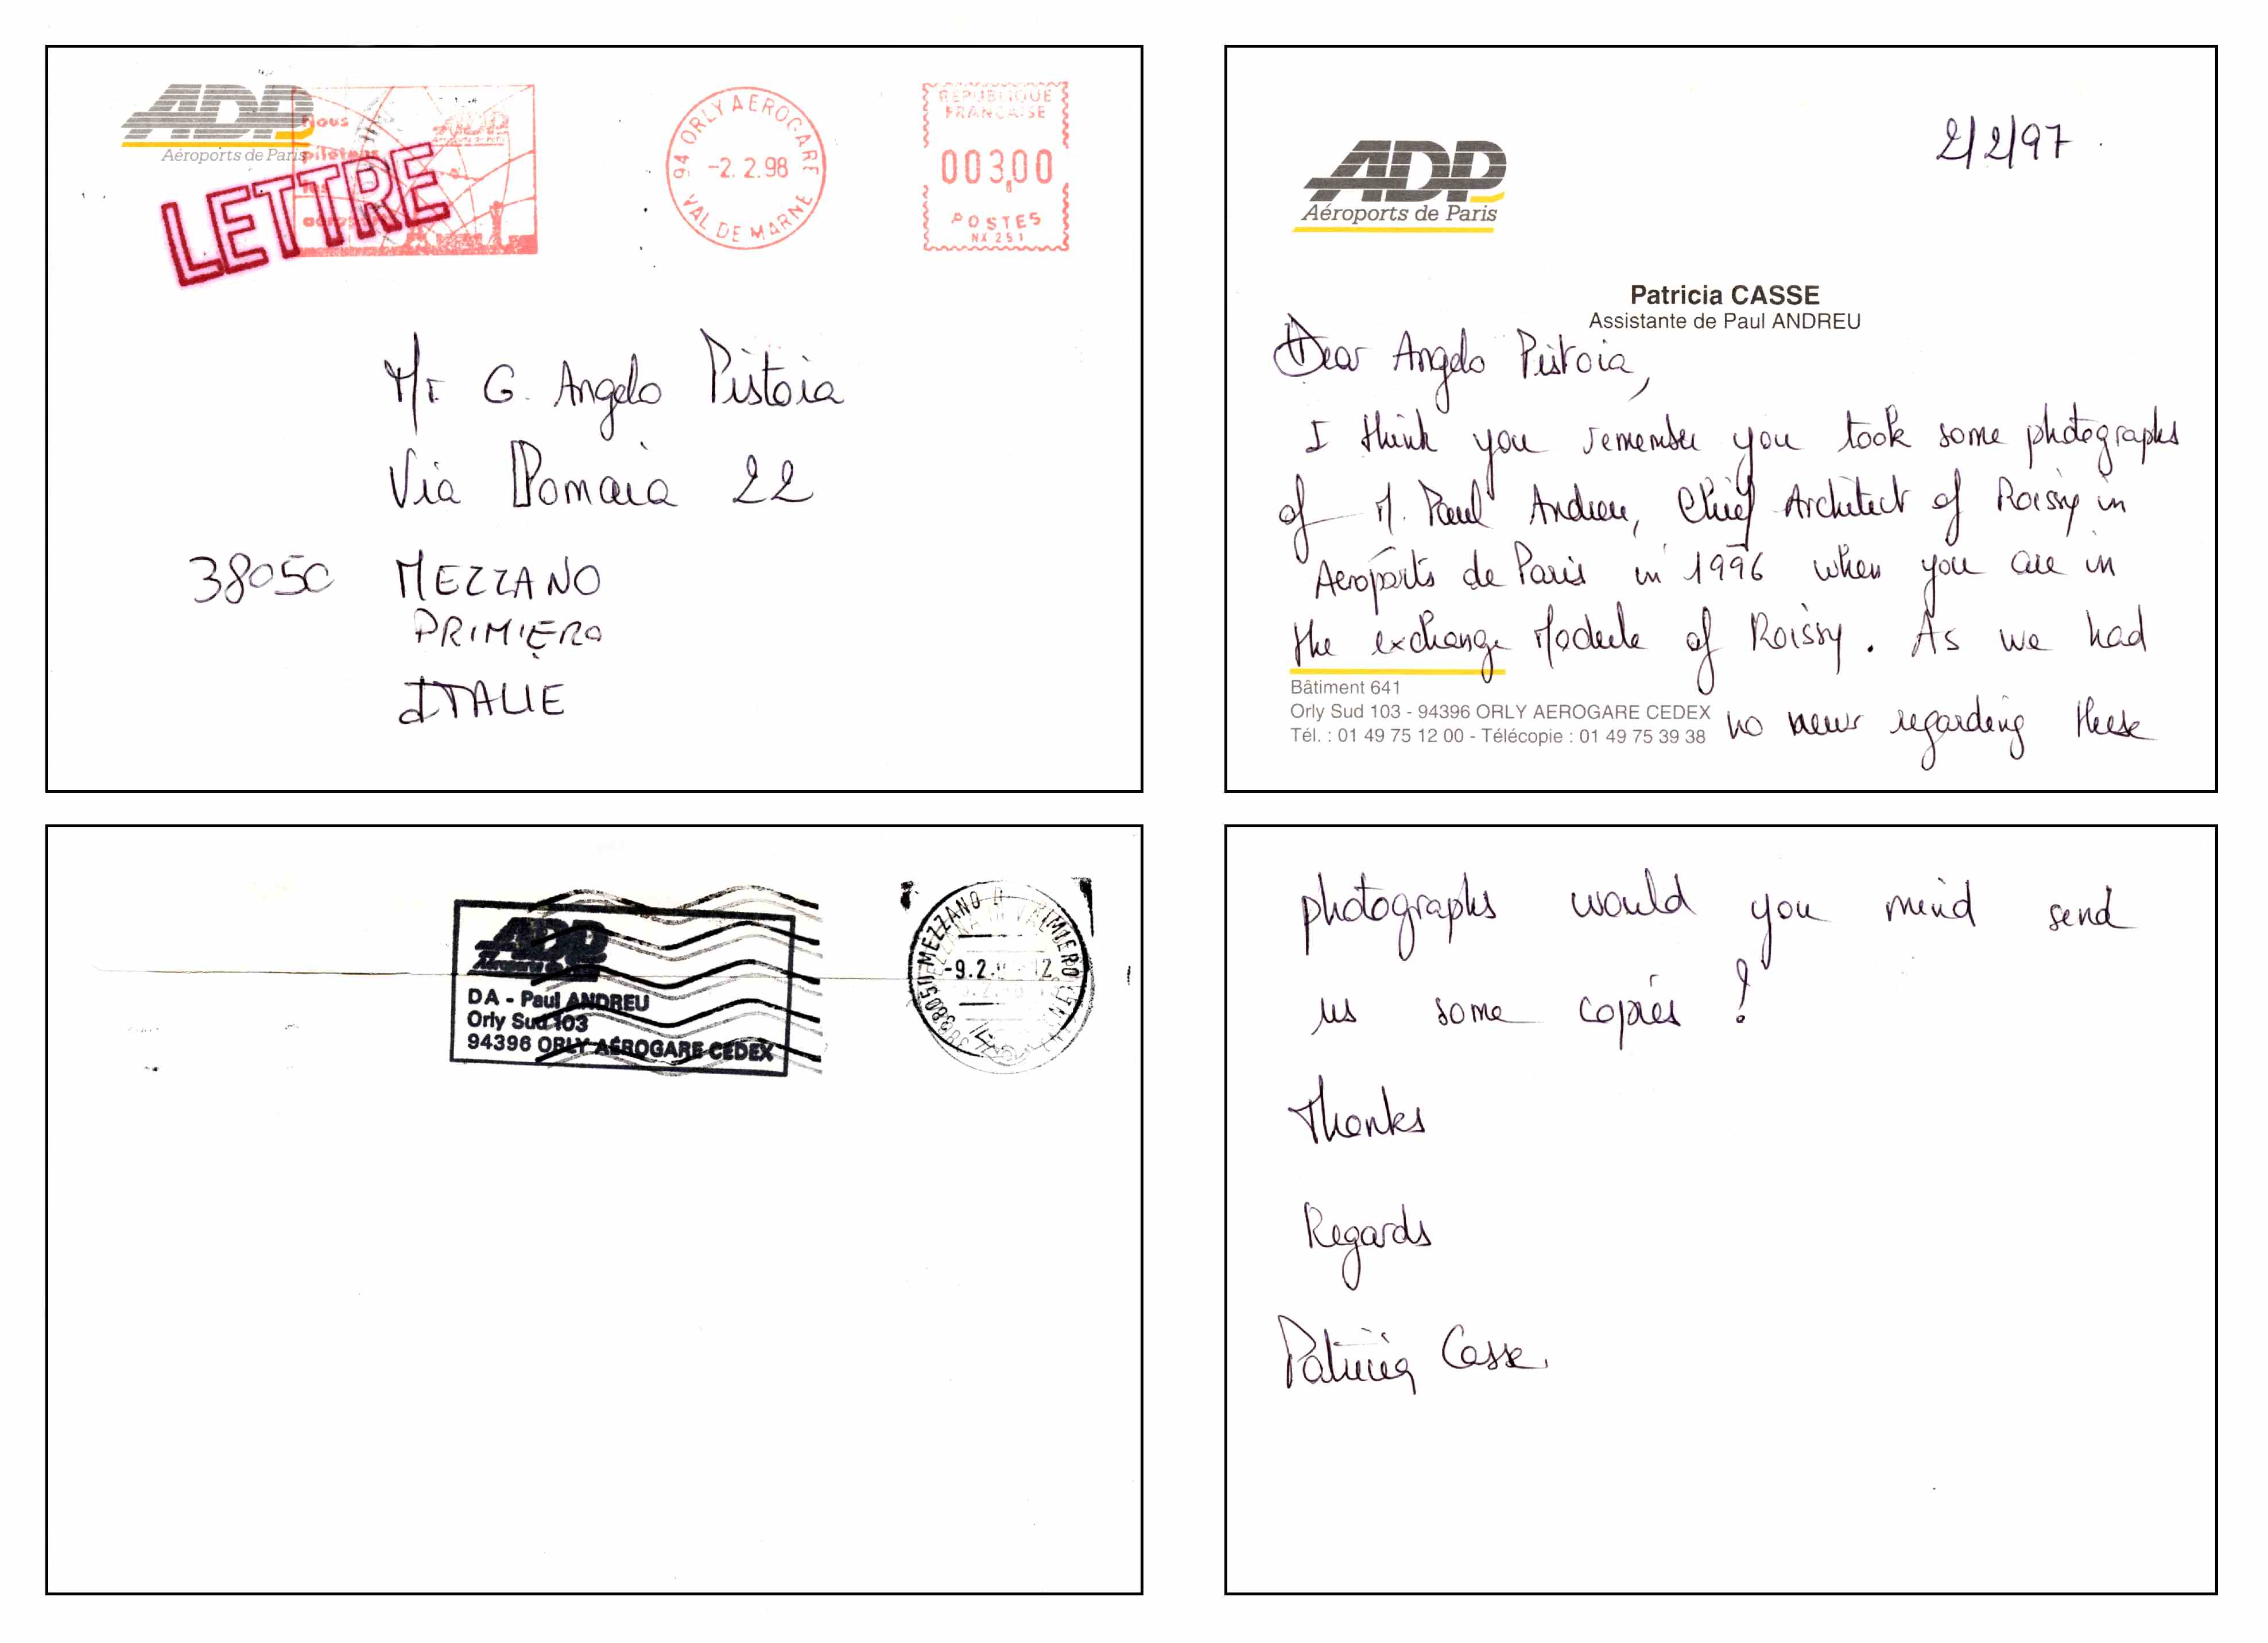 ADP
Aéroports de Paris
Nous
pilotons
LETTRE
94 ORLY AEROGARE
-2.2.98
VAL DE MARNE
REPUBLIQUE
FRANCAISE
00300
POSTES
NX 251
Mr G. Angelo Pistoia
Via Domaia 22
38050 MEZZANO
PRIMIERO
ITALIE
2/2/97
ADP
Aéroports de Paris
Patricia CASSE
Assistante de Paul ANDREU
Dear Angelo Pistoia,
I think you remember you took some photographs
of M. Paul Andreu, Chief Architect of Roissy in
Aeroports de Paris in 1996 when you are in
the exchange Module of Roissy. As we had
Bâtiment 641
Orly Sud 103 - 94396 ORLY AEROGARE CEDEX
Tél. : 01 49 75 12 00 - Télécopie : 01 49 75 39 38
no news regarding these
ADP
Aéroports de Paris
DA - Paul ANDREU
Orly Sud 103
94396 ORLY AÉROGARE CEDEX
38050 MEZZANO
-9.2. 12
photographs would you mind send
us some copies ?
Thanks
Regards
Patricia Casse.